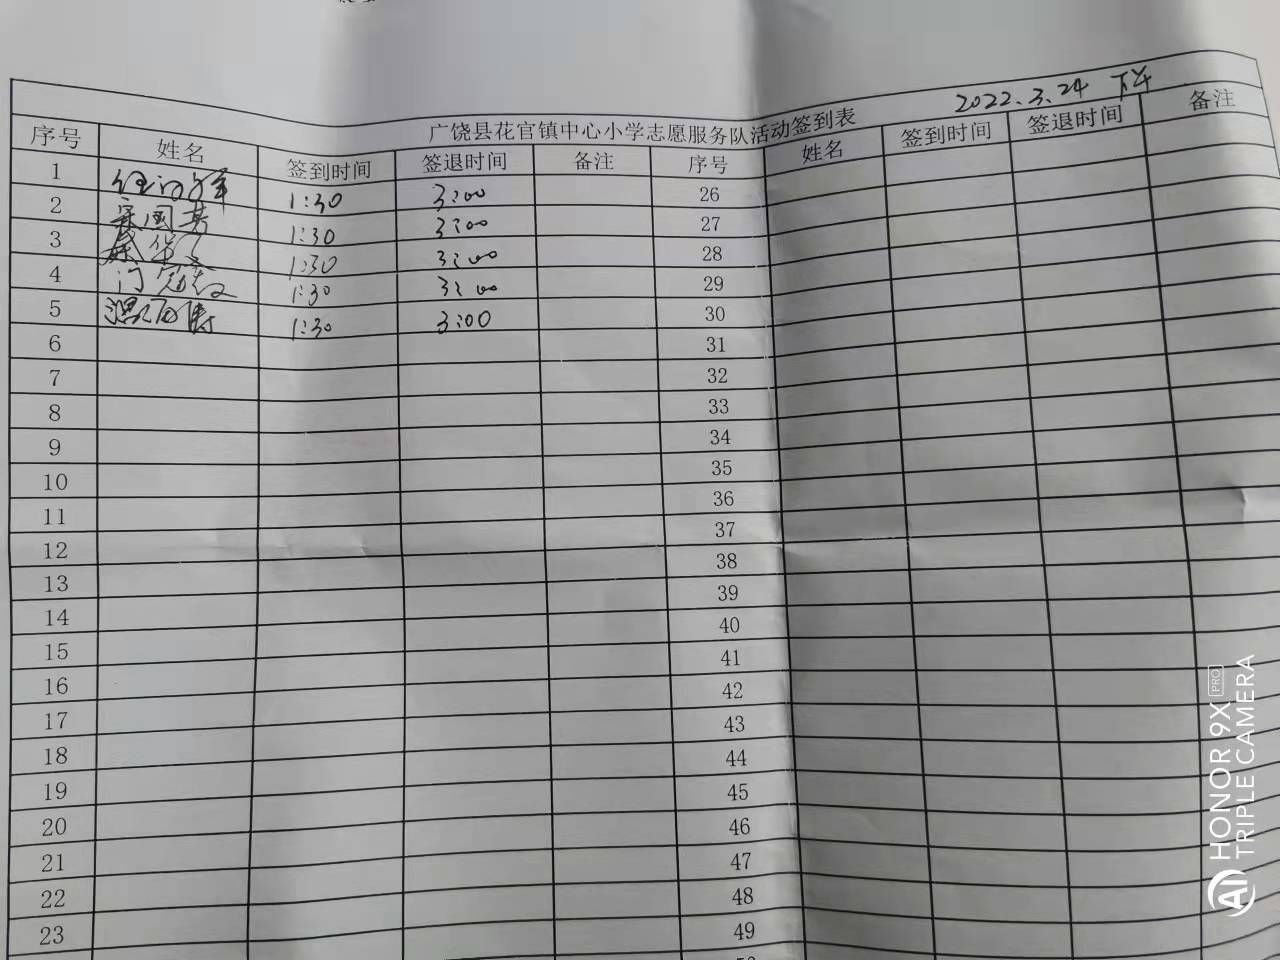 2022.3.24 下午
广饶县花官镇中心小学志愿服务队活动签到表
序号 姓名 签到时间 签退时间 备注 序号 姓名 签到时间 签退时间 备注
1 1:30 3:00 26
2 宋国芳 1:30 3:00 27
3 1:30 3:00 28
4 1:30 3:00 29
5 1:30 3:00 30
6 31
7 32
8 33
9 34
10 35
11 36
12 37
13 38
14 39
15 40
16 41
17 42
18 43
19 44
20 45
21 46
22 47
23 48
49
HONOR 9X PRO
AI TRIPLE CAMERA